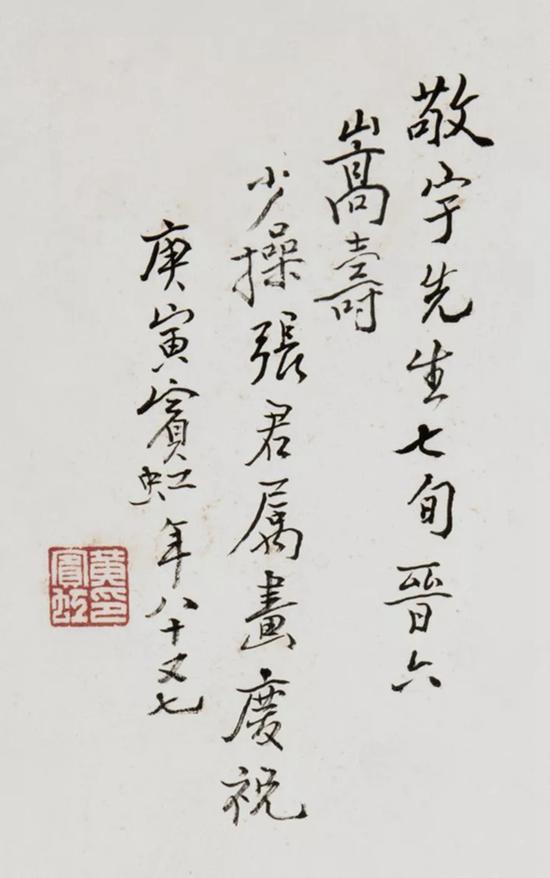 敬宇先生七旬晉六
嵩壽
少操張君属畫慶祝
庚寅賓虹年八十又七
黄賓虹印